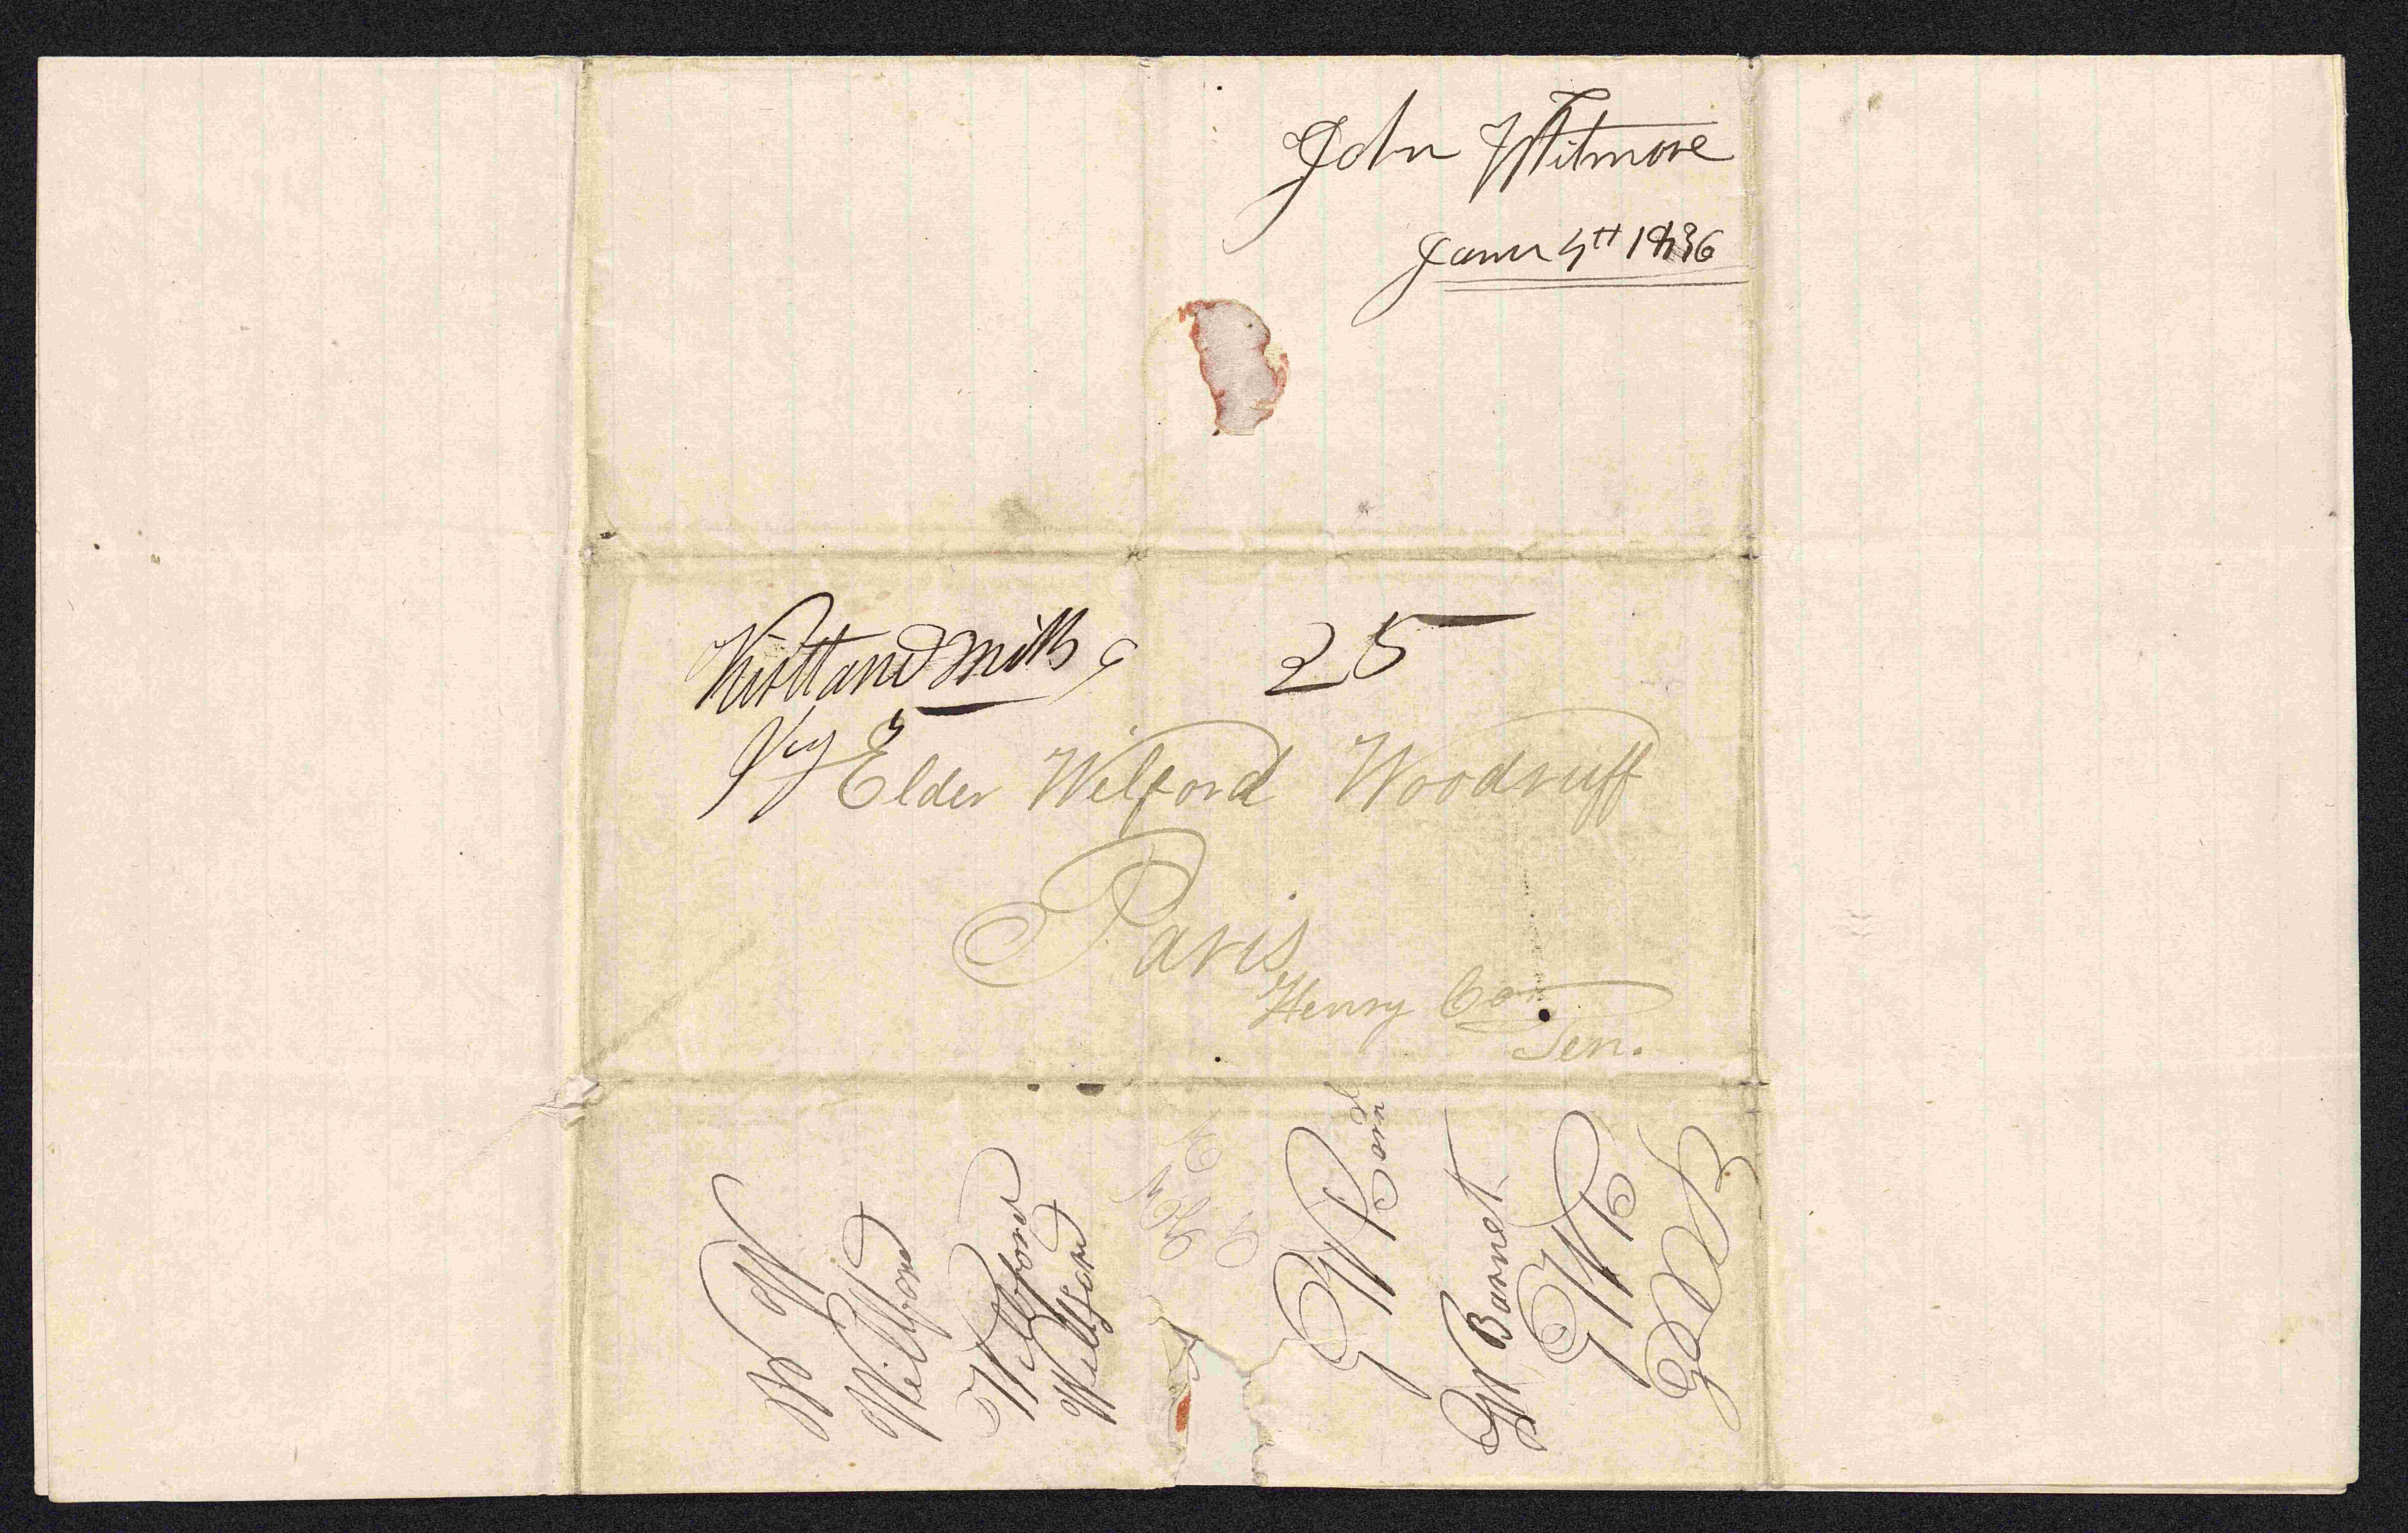 John Witmore
Janu 4th 1836
Kirtland Mills 25
Elder Wilford Woodruff
Paris
Henry Co
Ten.
W W
Willford
Willford
Willford
G W B
G W Barnet
G W B
G W B